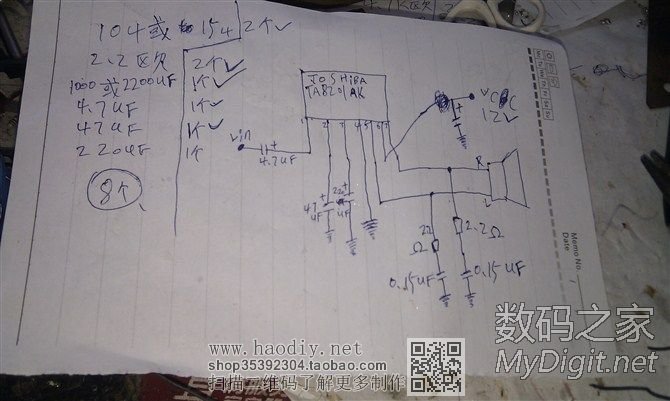 104或154 2个✓
2.2欧 2个✓
1000或2200uF 1个✓
4.7uF 1个✓
47uF 1个✓
220uF 1个
8个
TOSHIBA
TA8201AK
Vin
4.7uF
1 2 3 4 5 6 7
VCC
12V
47
uF
220
uF
R
L
22
Ω
2.2
Ω
0.15uF
0.15uF
Memo No.
Date
www.haodiy.net
shop35392304.taobao.com
扫描二维码了解更多制作
数码之家
MyDigit.net